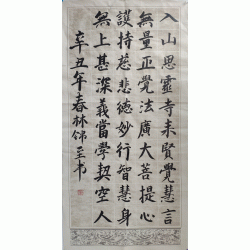 入山思靈寺來賢覺慧言
無量正覺法廣大菩提心
護持慈悲德妙行智慧身
無上甚深義當學契空人
辛丑年春林錦
書